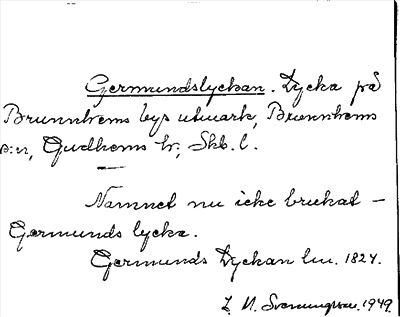 Germundslyckan. Lycka på
Brunnhems bys utmark, Brunnhems
s:n, Gudhems hr; Skb. l.
—
Namnet nu icke brukat –
Germunds lycka.
Germunds Lyckan lm. 1824.
L. M. Svenungsson. 1949.